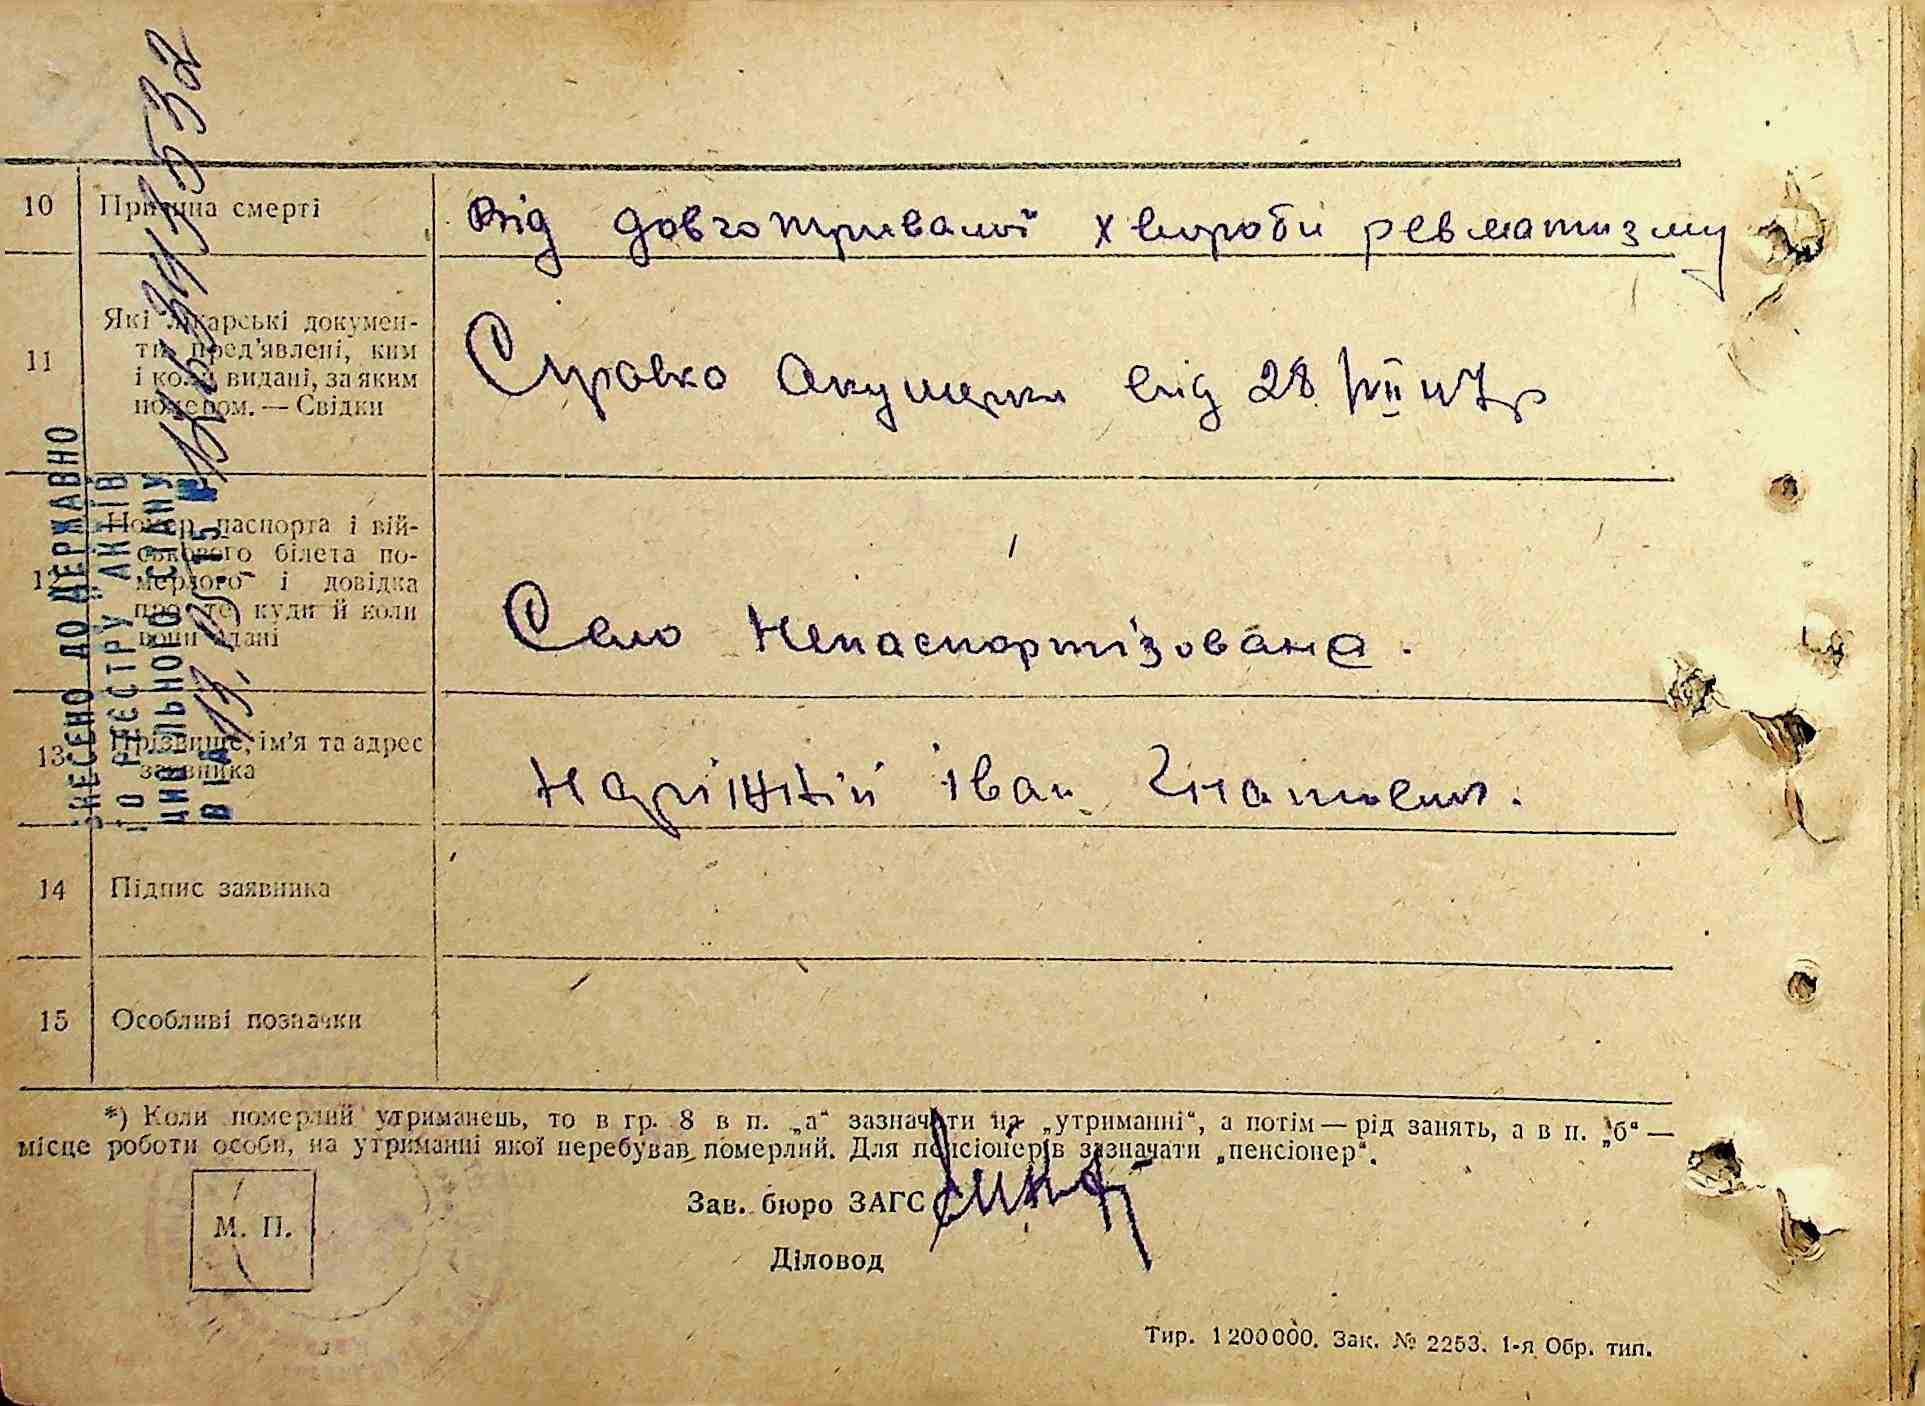 10 Причина смерті Від довготривалої хвороби ревматизму
11 Які лікарські докумен-
ти пред'явлені, ким
і коли видані, за яким
номером. — Свідки
Справка Акушерки від 28/VII 47р
12 Номер паспорта і вій-
ськового білета по-
мерлого і довідка
про те, куди й коли
вони здані
Село Непаспортізоване.
13 Прізвище, ім'я та адрес
заявника
Іван Гнатович.
14 Підпис заявника
15 Особливі позначки
*) Коли померлий утриманець, то в гр. 8 в п. „а“ зазначати на „утриманні“, а потім — рід занять, а в п. „б“ —
місце роботи особи, на утриманні якої перебував померлий. Для пенсіонерів зазначати „пенсіонер“.
М. П.
Зав. бюро ЗАГС
Діловод
Тир. 1200000. Зак. № 2253. 1-я Обр. тип.
ВНЕСЕНО ДО ДЕРЖАВНО
ГО РЕЄСТРУ АКТІВ
ЦИВІЛЬНОГО СТАНУ